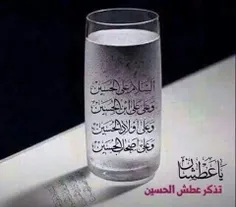 السلام على الحسين
وعلى علي ابن الحسين
وعلى اولاد الحسين
وعلى اصحاب الحسين
يا عطشان
تذكر عطش الحسين